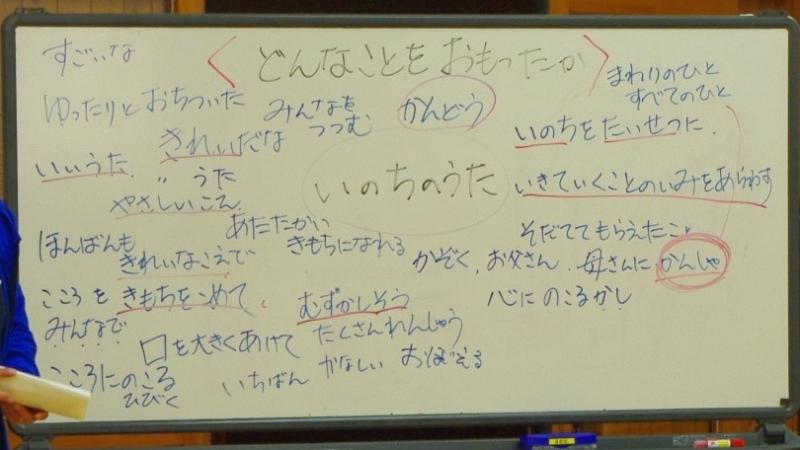 すごいな
〈どんなことをおもったか〉
まわりのひと
すべてのひと
ゆったりと おちついた
みんなを
つつむ
かんどう
いのちをたいせつに.
きれいだな
いいうた
〃 うた
いのちのうた
いきていくことのいみをあらわす
やさしいこえ
あたたかい
きもちになれる
そだててもらえたこと
ほんばんも
きれいなこえで
かぞく、お父さん、母さんに かんしゃ
こころを きもちをこめて、
むずかしそう
心にのこるかし
みんなで
口を大きくあけて
たくさんれんしゅう
こころにのこる
ひびく
いちばん かなしい おぼえる